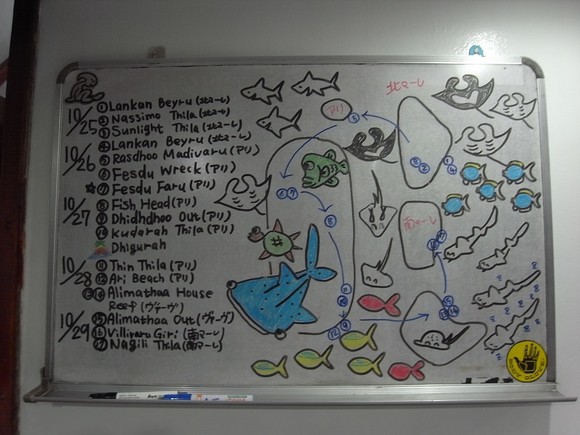 ①Lankan Beyru(北マーレ)
10/25 ②Nassimo Thila(北マーレ)
③Sunlight Thila(北マーレ)
④Lankan Beyru(北マーレ)
10/26 ⑤Rasdhoo Madivaru(アリ)
⑥Fesdu Wreck(アリ)
☆⑦Fesdu Faru(アリ)
10/27 ⑧Fish Head(アリ)
⑨Dhidhdhoo Out(アリ)
⑩Kudarah Thila(アリ)
Dhigurah
10/28 ⑪Thin Thila(アリ)
⑫Ari Beach(アリ)
⑬⑭Alimathaa House
Reef(ヴァーヴ)
10/29 ⑮Alimathaa Out(ヴァーヴ)
⑯Villivaru Giri(南マーレ)
⑰Nagili Thila(南マーレ)
北マーレ
アリ
南マーレ